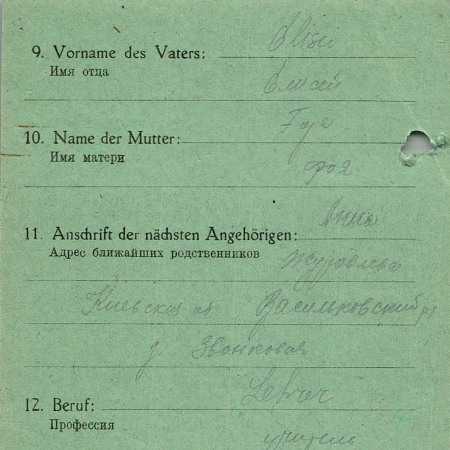 9. Vorname des Vaters: Elisei
Имя отца
Елисей
10. Name der Mutter:
Имя матери
11. Anschrift der nächsten Angehörigen: Анна
Адрес ближайших родственников
Киевская об Васильковский р
д Звонковая
12. Beruf: Lehrer
Профессия
учитель